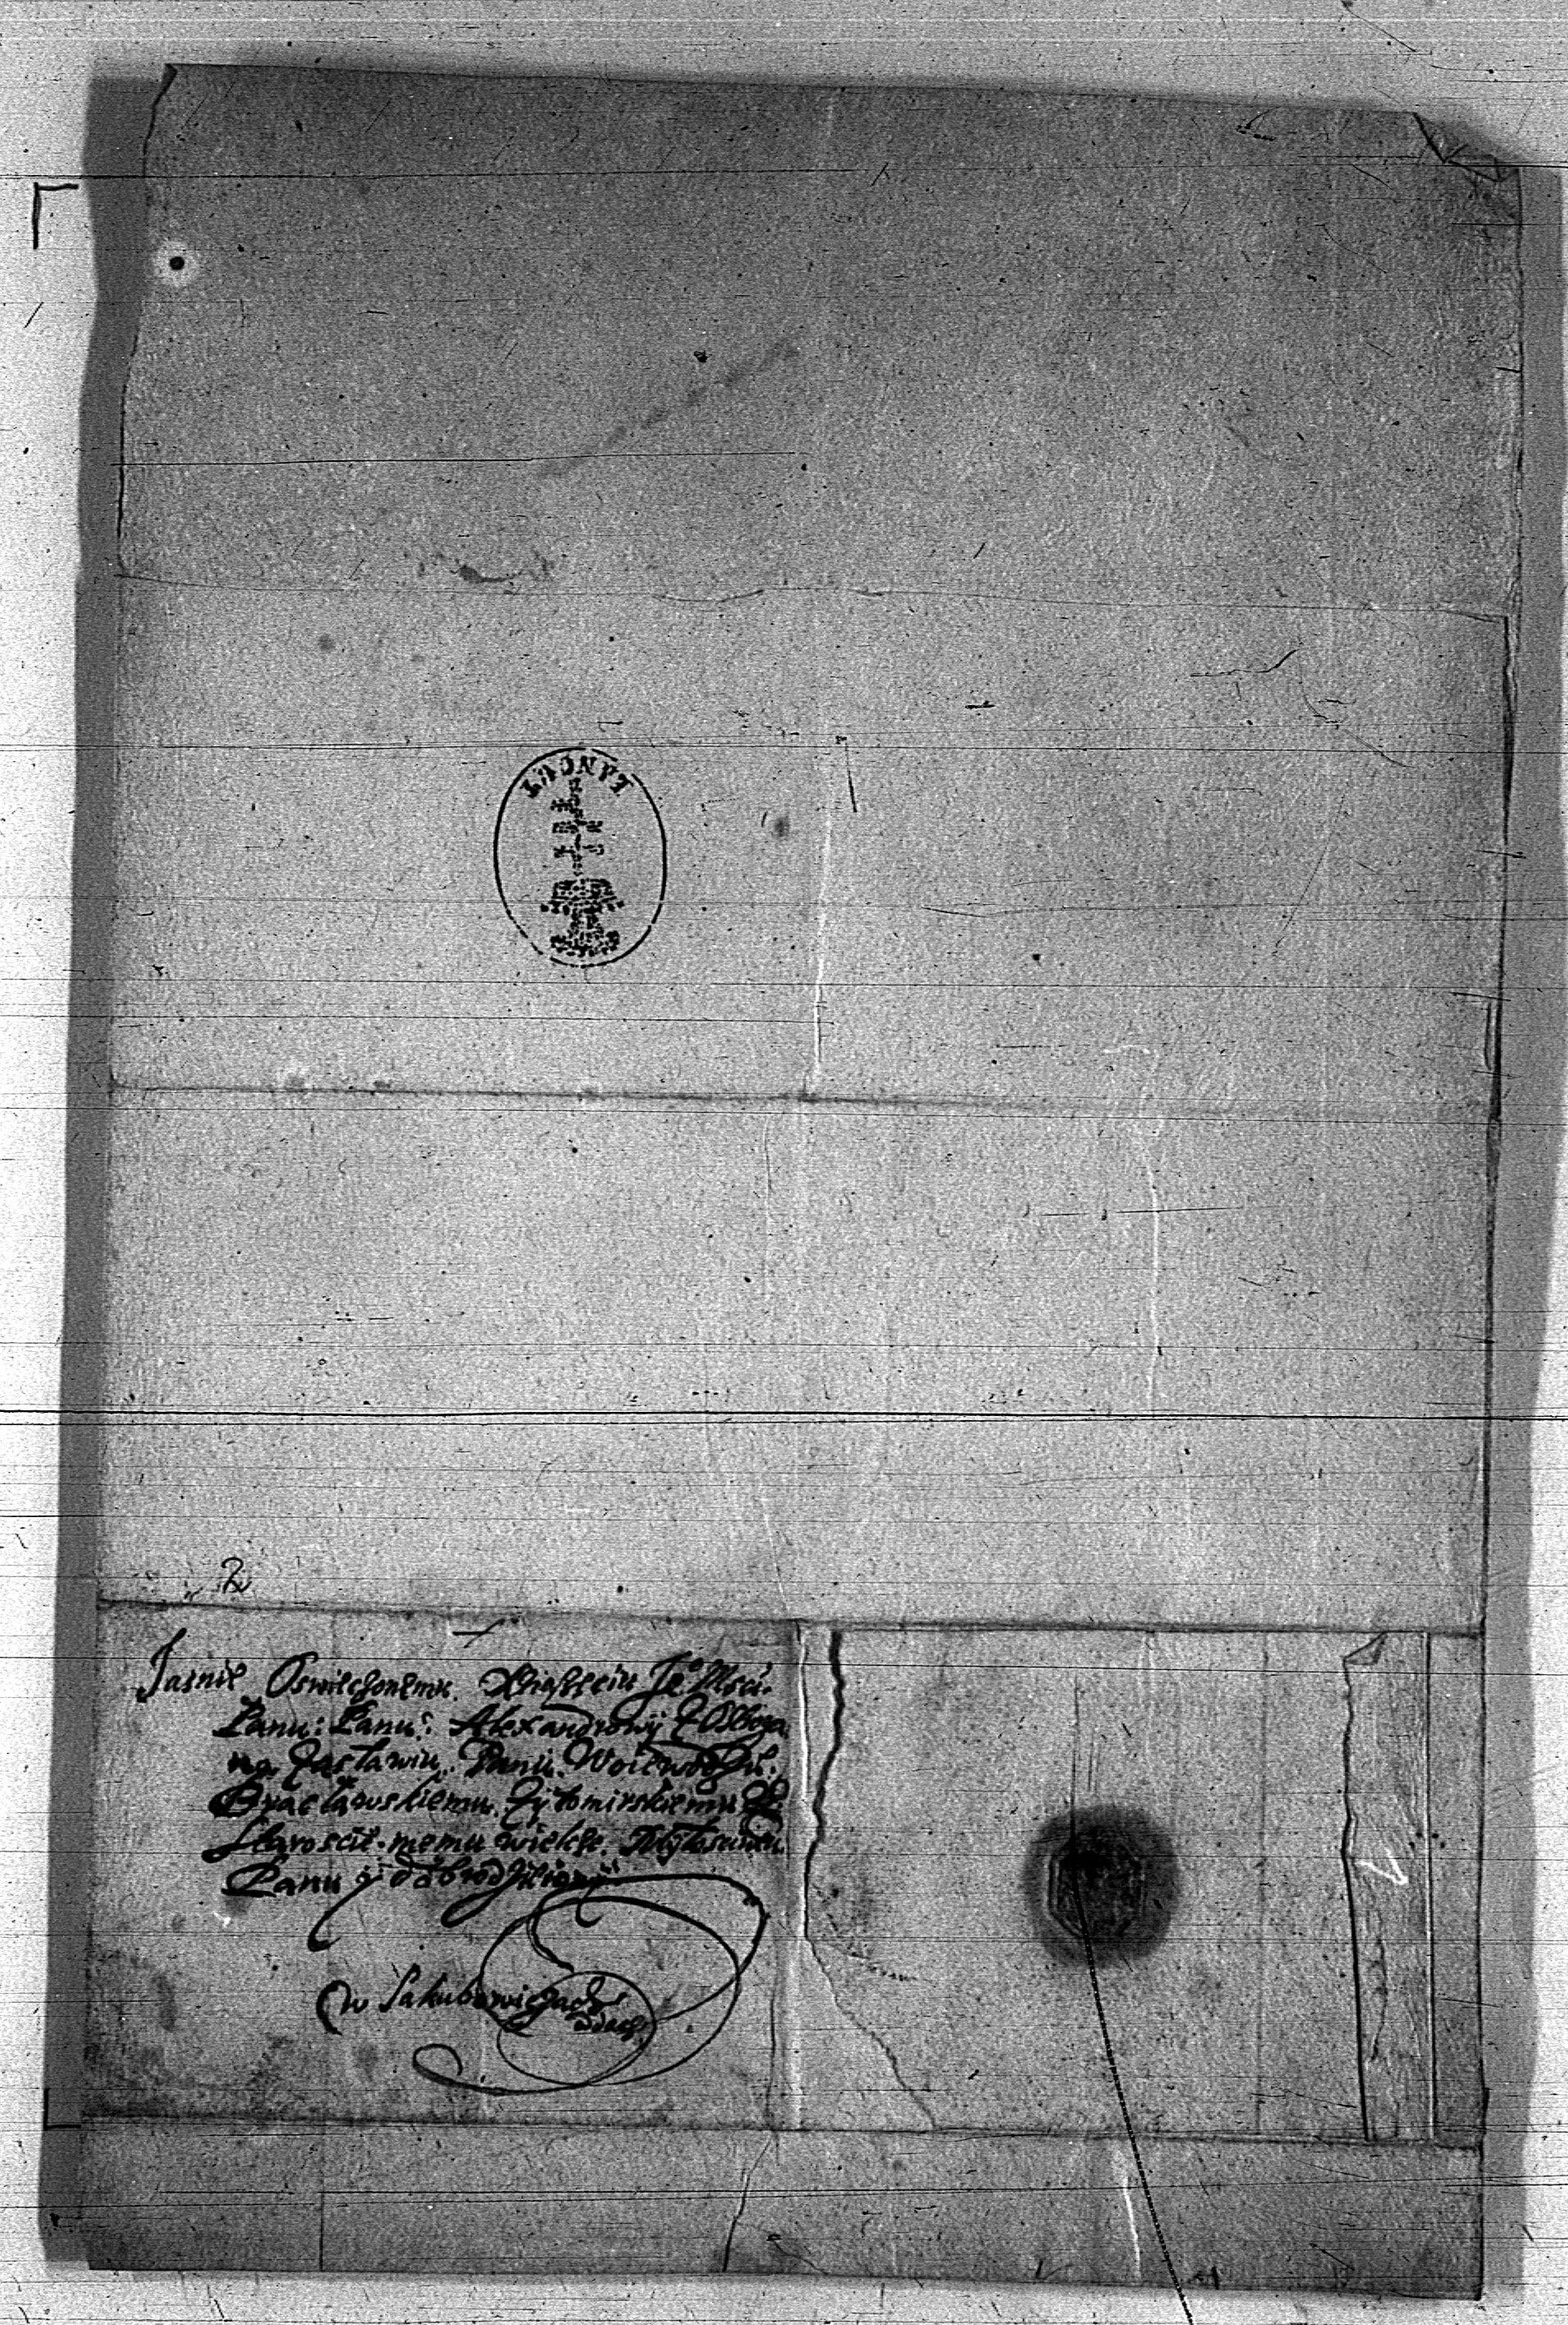 ŁAŃCUT
2
Jasnie Oswieczonemu Xiąszęciu Je° Msci.
Panu: Panu: Alexandrowÿ Z Ostroga
na Zasławiu. Panu. Woiewodzie.
Bracławskiemu. Zÿtomirskiemu
Staroscie. memu wielce Mosciwemu
Panu ÿ dobrodzieiowÿ
w Jakubowiczach